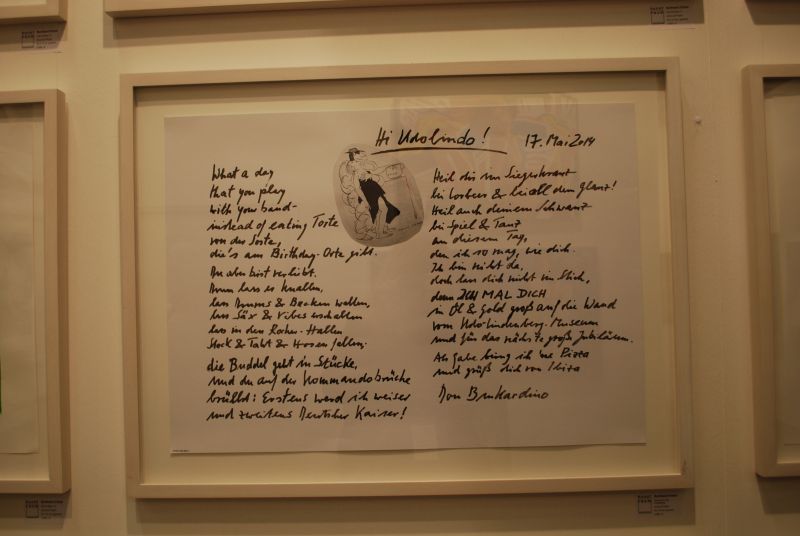 Hi Udolindo!
17. Mai 2014
What a day
that you play
with your band-
instead of eating Torte
von der Sorte,
die's am Birthday-Orte gibt.
Du aber bist verliebt.
Nun lass es knallen,
lass Drums & Becken wallen,
lass Sax & Vibes erschallen
lass in den Rocker-Hallen
Stock & Takt & Hosen fallen.
die Buddel geht in Stücke,
und du auf der Kommandobrücke
brüllst: Erstens werd ich weiser
und zweitens Deutscher Kaiser!
Heil dir im Siegerkranz
bei Lorbeer & bei all dem Glanz!
Heil auch deinem Schwanz
bei Spiel & Tanz
an diesem Tag,
den ich so mag, wie dich.
Ich bin nicht da,
doch lass dich nicht im Stich,
denn ICH MAL DICH
in Öl & Gold groß auf die Wand
vom Udo-Lindenberg-Museum
und für das nächste große Jubiläum.
Als Gabe bring ich ne Pizza
und grüß dich von Ibiza
Don